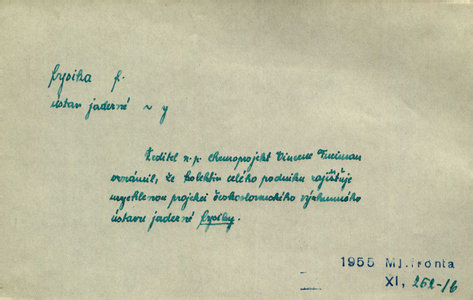 fysika f.
ústav jaderné ~ y
Ředitel n.p. Chemoprojekt Vincenc Freiman
oznámil, že kolektiv celého podniku zajišťuje
urychlenou projekci československého výzkumného
ústavu jaderné fysiky.
1955 Ml.fronta
XI, 252-/6